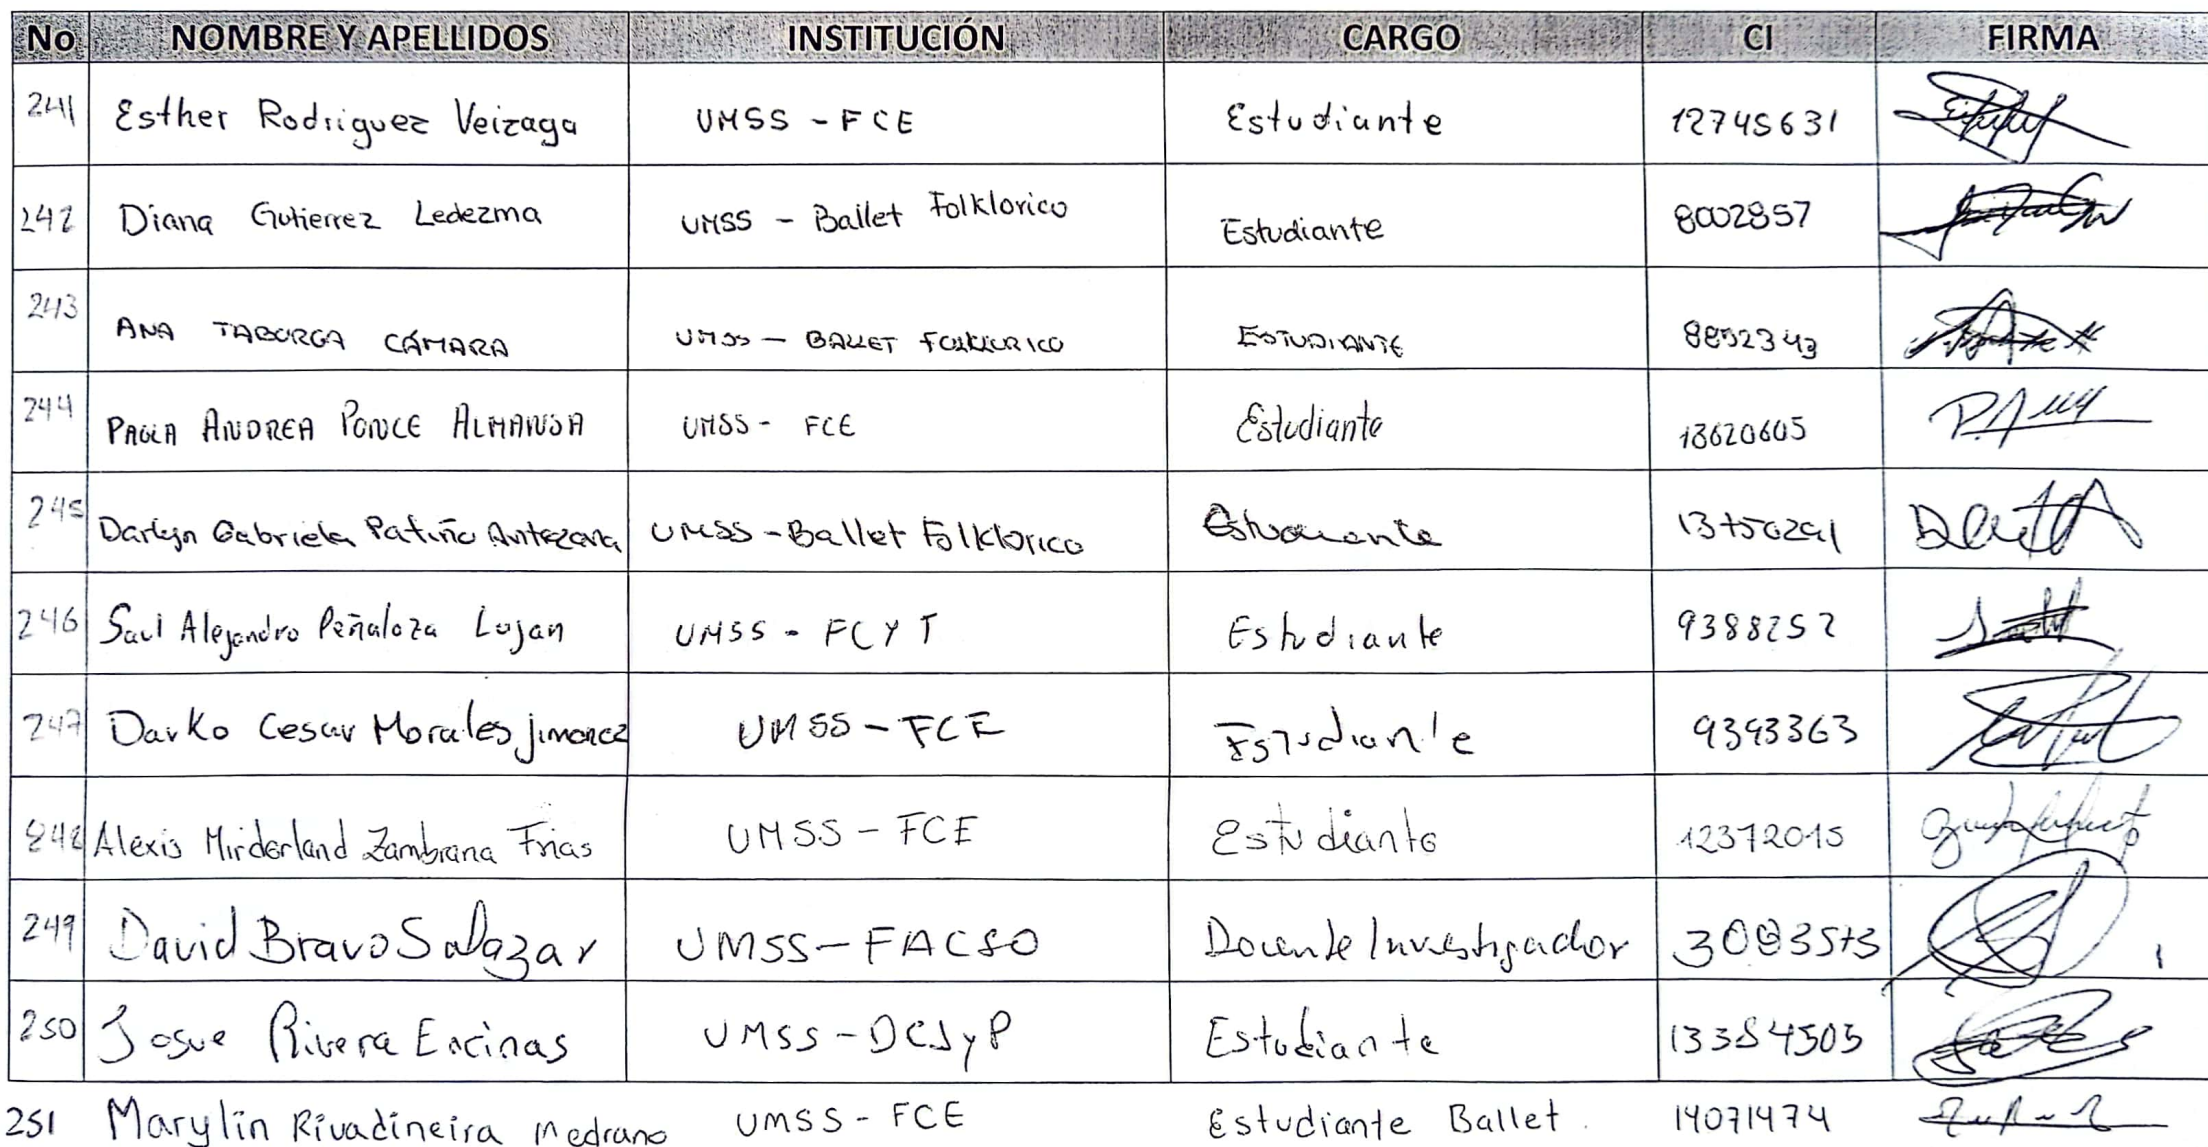 No NOMBRE Y APELLIDOS INSTITUCIÓN CARGO CI FIRMA
241 Esther Rodriguez Veizaga UMSS - FCE Estudiante 12745631
242 Diana Gutierrez Ledezma UMSS - Ballet Folklorico Estudiante 8002857
243 ANA TABORGA CÁMARA UMSS - BALLET FOLKLORICO ESTUDIANTE 8852343
244 PAOLA ANDREA PONCE ALMANSA UMSS - FCE Estudiante 13620605
245 Darlyn Gabriela Patiño Antezana UMSS - Ballet Folklorico Estudiante 13750291
246 Saul Alejandro Peñaloza Lujan UMSS - FCYT Estudiante 9388252
247 Darko Cesar Morales Jimenez UMSS - FCE Estudiante 9393363
248 Alexis Mirderland Zambrana Frias UMSS - FCE Estudiante 12372015
249 David Bravo Salazar UMSS - FACSO Docente Investigador
250 Josue Rivera Encinas UMSS - DCJyP Estudiante 13384505
251 Marylin Rivadineira Medrano UMSS - FCE Estudiante Ballet. 14071474